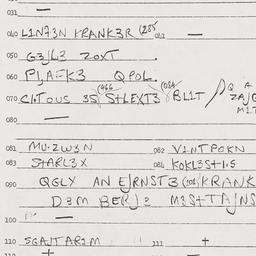 031 —
040 L1NT3N KRANK3R (285 041 —
050 G3JL3 ZOXT .
060 PJAFK3 QPOL.
070 CLITOUS 35 (066 S+LEXT3 (084 BL1T
080 —
081 MU:ZW3N 082 V1NTPOKN
083 S+ARL3X 084 KOKL3S+1.5
090 QGLY AN EJRNST3 (101 KRANK
D3M BERJ3 M3S+TAJNS
100 —
110 SGAJTAR3M 111 +